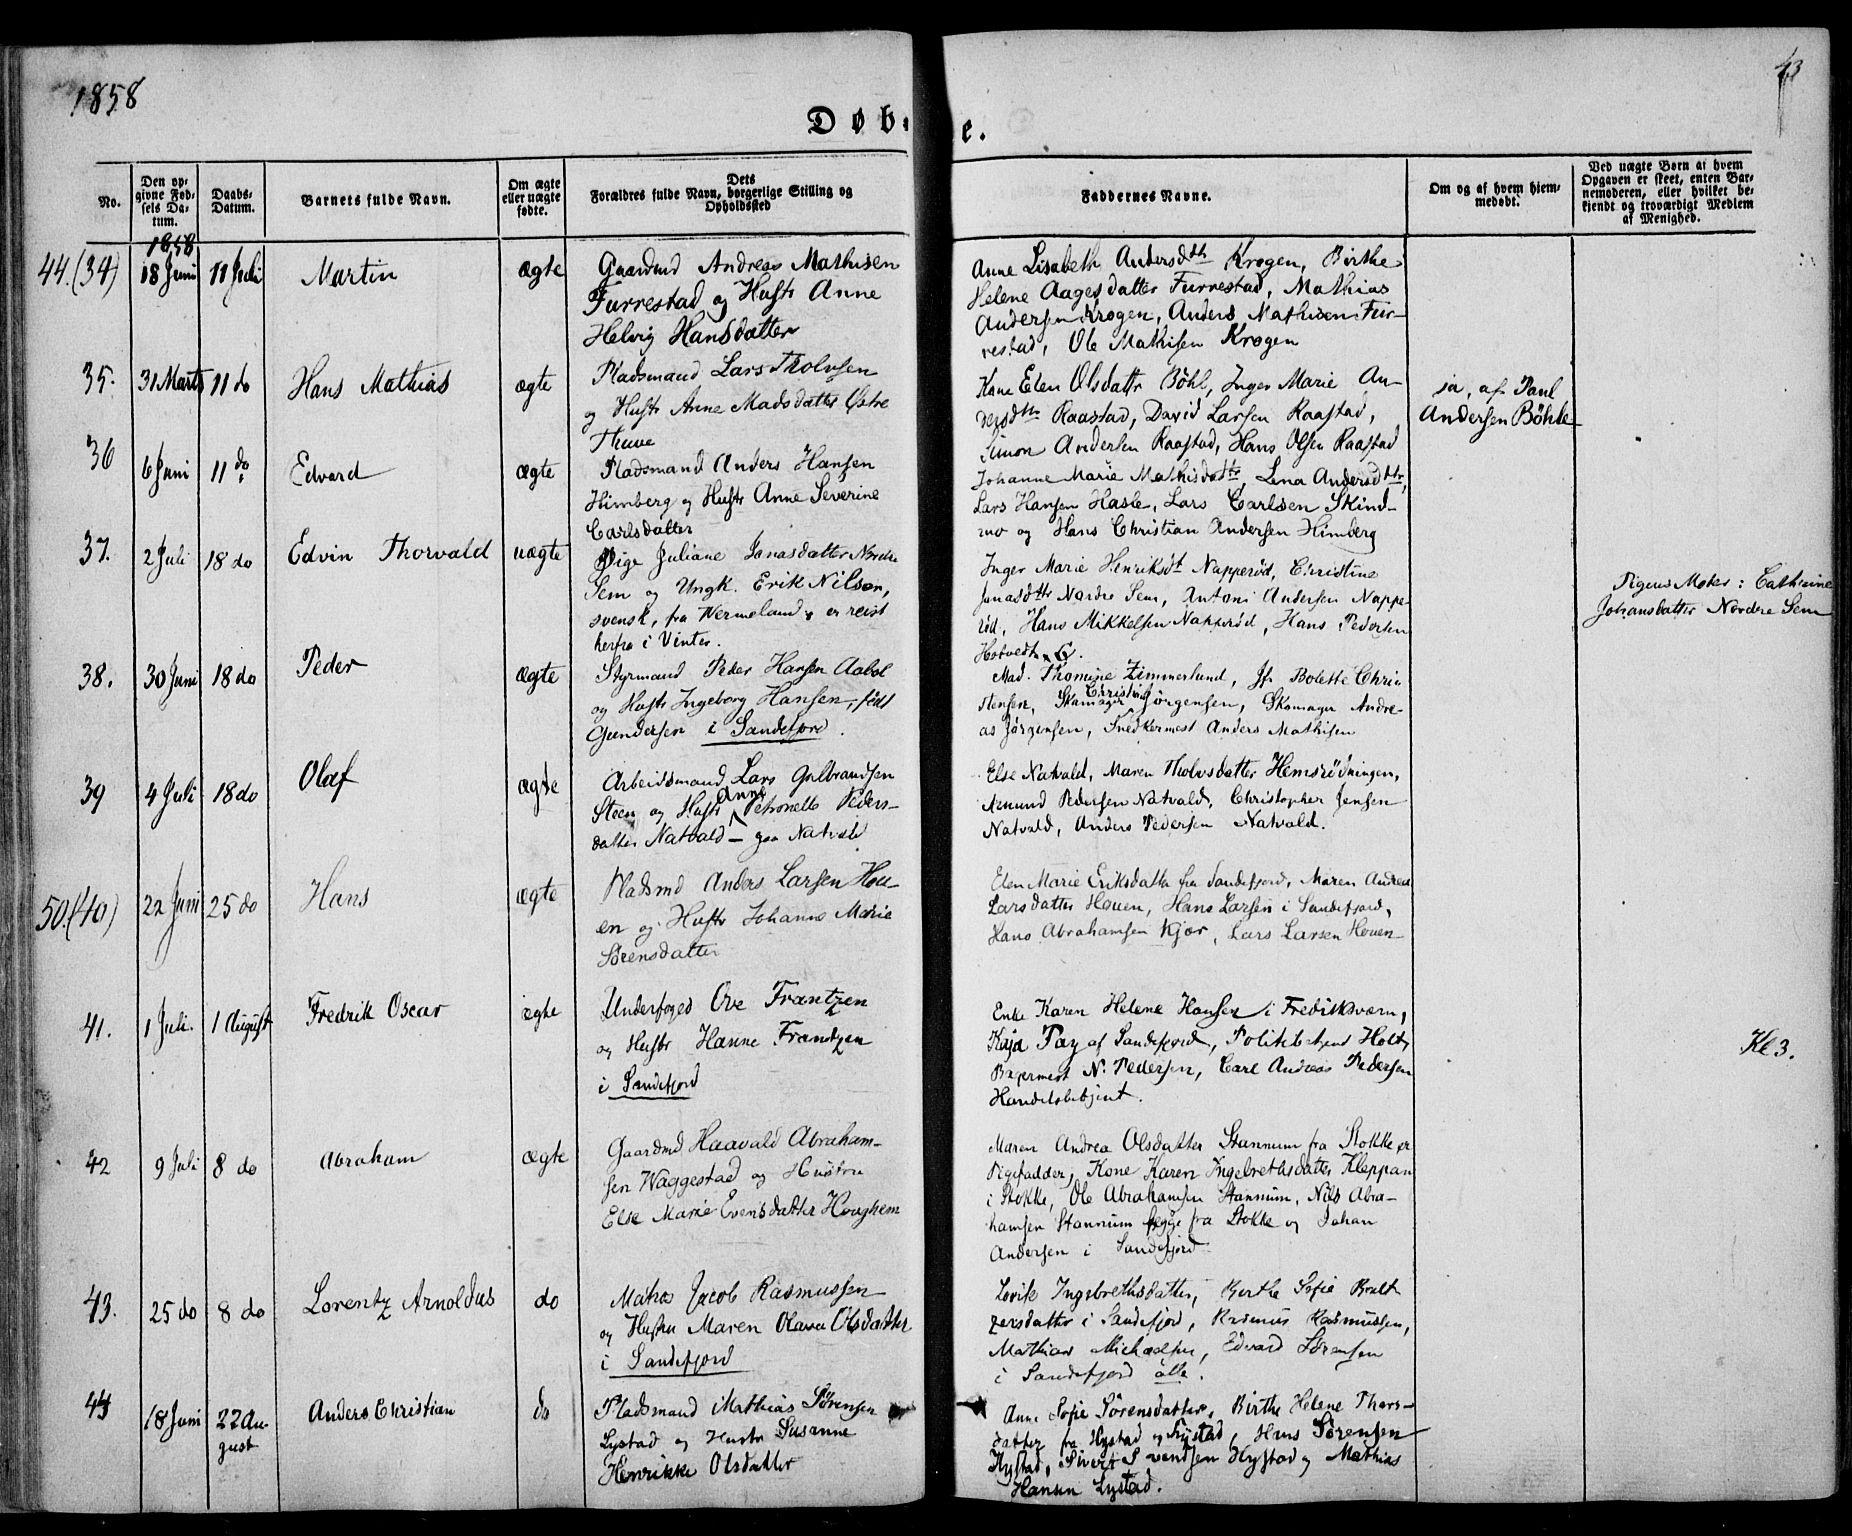 1858
43
Døbte.
No.
Den opgivne Fødsels Datum.
Daabs-Datum.
Barnets fulde Navn.
Om ægte eller uægte fødte.
Dets Forældres fulde Navn, borgerlige Stilling og Opholdssted
Faddernes Navne.
Om og af hvem hjemmedøbt.
Ved uægte Børn at hvem Opgaven er skeet, enten Barnemoderen, eller hvilket bekjendt og troværdigt Medlem af Menighed.
1858
44.(34) 18 Juni 11 Juli Martin ægte
Gaardmd Andreas Mathisen
Furrestad og Hustr Anne
Helvig Hansdatter
Anne Lisabeth Andersdtr Krogen, Birthe
Helene Aagesdatter Furrestad, Mathias
Andersen Krogen, Anders Mathisen Fur-
restad, Ole Mathisen Krogen
35. 31 Marts 11 do Hans Mathias ægte
Pladsmand Lars Tholvsen
og Hustr Anne Madsdatter Østre
Thuve
Kone Elen Olsdattr Bøhl, Inger Marie An-
dersdtr Raastad, David Larsen Raastad,
Simon Andersen Raastad, Hans Olsen Raastad
ja, af Paul
Andersen Bøhle
36 6 Juni 11 do Edvard ægte
Pladsmand Anders Hansen
Himberg og Hustr Anne Severine
Carlsdatter
Johanne Marie Mathisdattr, Lena Andersdttr,
Lars Hansen Hasle, Lars Carlsen Skind-
mo og Hans Christian Andersen Himberg
37. 2 Juli 18 do Edvin Thorvald uægte
Pige Juliane Jonasdatter Nordre
Sem og Ungk. Erik Nilsen,
svensk, fra Wermeland, er reist
herfra i Vinter.
Inger Marie Henriksdt Napperød, Christine
Jonasdttr Nordre Sem, Antoni Andersen Nappe-
rød, Hans Mikkelsen Napperød, Hans Pedersen
Hotvedt
Pigens Moder: Cathrine
Johansdatter Nordre Sem
38. 30 Juni 18 do Peder ægte
Styrmand Peder Hansen Aabol
og Hustr Ingeborg Hansen, født
Gundersen i Sandefjord.
Mad. Thomine Zimmerlund, Jfr Bolette Chri-
stensen, Skomager Christian Jørgensen, Skomager Andre-
as Jørgensen, Snedkermest Anders Mathisen
39 4 Juli 18 do Olaf ægte
Arbeidsmand Lars Gulbrandsen
Steen og Hustr Anne Petronelle Peders-
datter Natvald – paa Natvald
Else Natvald, Maren Tholvsdatter Hemsrødningen,
Amund Pedersen Natvald, Christopher Jensen
Natvald, Anders Pedersen Natvald.
50.(40) 22 Juni 25 do Hans ægte
Pladsmd Anders Larsen Hou-
en og Hustr Johanne Marie
Sørensdatter
Elen Marie Eriksdatter fra Sandefjord, Maren Andrea
Larsdatter Houen, Hans Larsen i Sandefjord,
Hans Abrahamsen Kjær, Lars Larsen Houen
41. 1 Juli. 1 August Fredrik Oscar ægte
Underfoged Ove Frantzen
og Hustr Hanne Frantzen
i Sandefjord
Enke Karen Helene Hansen i Fredriksværn,
Kaja Pay af Sandefjord, Politibetjent Holt,
Bagermest N. Pedersen, Carl Andreas Pedersen
Handelsbetjent.
Kl 3.
42 9 Juli 8 do Abraham ægte
Gaardmd Haavald Abraham-
sen Waggestad og Hustru
Else Marie Evensdatter Houghem
Maren Andrea Olsdatter Stannum fra Stokke er
Pigefadder, Kone Karen Ingebrethsdatter Kleppan
i Stokke, Ole Abrahamsen Stannum, Nils Abra-
hamsen Stannum begge fra Stokke og Johan
Andersen i Sandefjord
43. 25 do 8 do Lorentz Arnoldus do
Matros Jacob Rasmussen
og Hustru Maren Olava Olsdatter
i Sandefjord
Lovise Ingebrethsdatter, Berthe Sofie Balt-
zersdatter i Sandefjord, Rasmus Rasmussen,
Mathias Michaelsen, Edvard Sørensen
i Sandefjord alle.
44 18 Juni 22 Au-
gust Anders Christian do
Pladsmand Mathias Sørensen
Lystad og Hustr Susanne
Henrikke Olsdatter
Anne Sofie Sørensdatter, Birthe Helene Thors-
datter fra Hystad og Fystad, Hans Sørensen
Hystad, Sivert Svendsen Hystad og Mathias
Hansen Lystad.